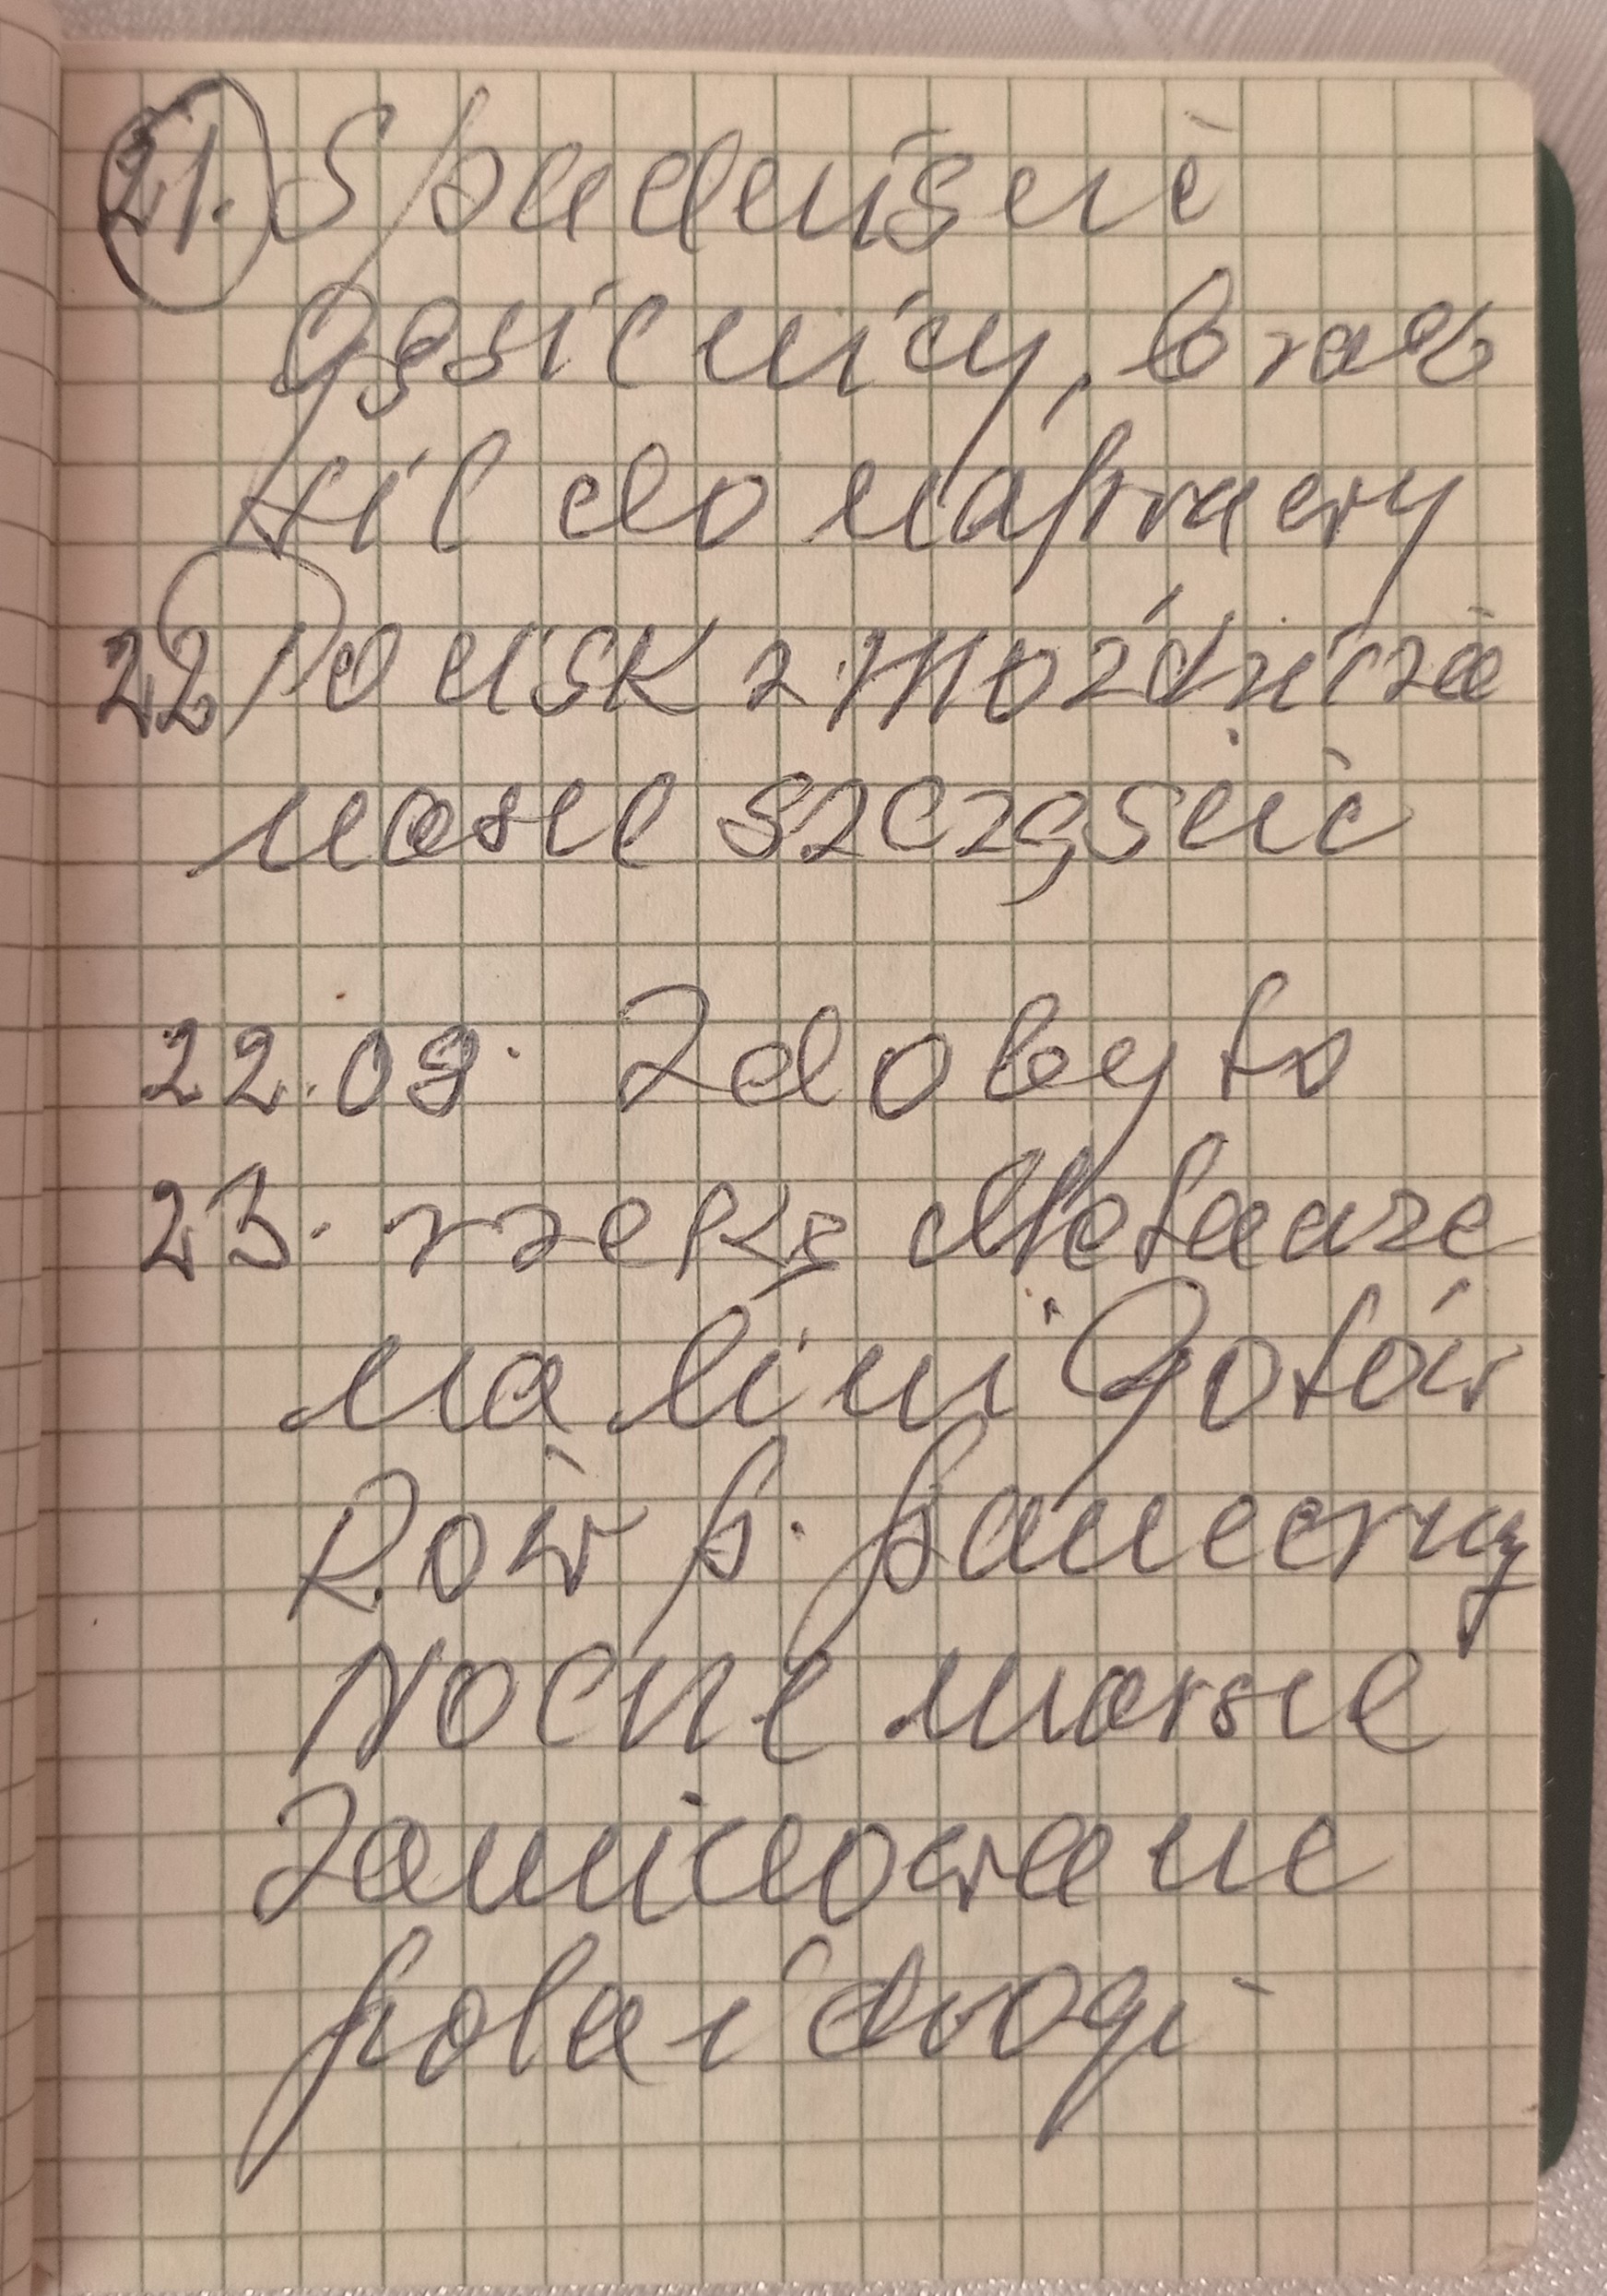 21. Spadnięcie
gąsienicy, brak
sił do naprawy
22 Pocisk z moździerza
nasze szczęście
22.08. Zdobyto
23. rzekę Metauro
na lini Gotów
Rów p. pancerny
Nocne marsze
Zaminowane
pola i drogi